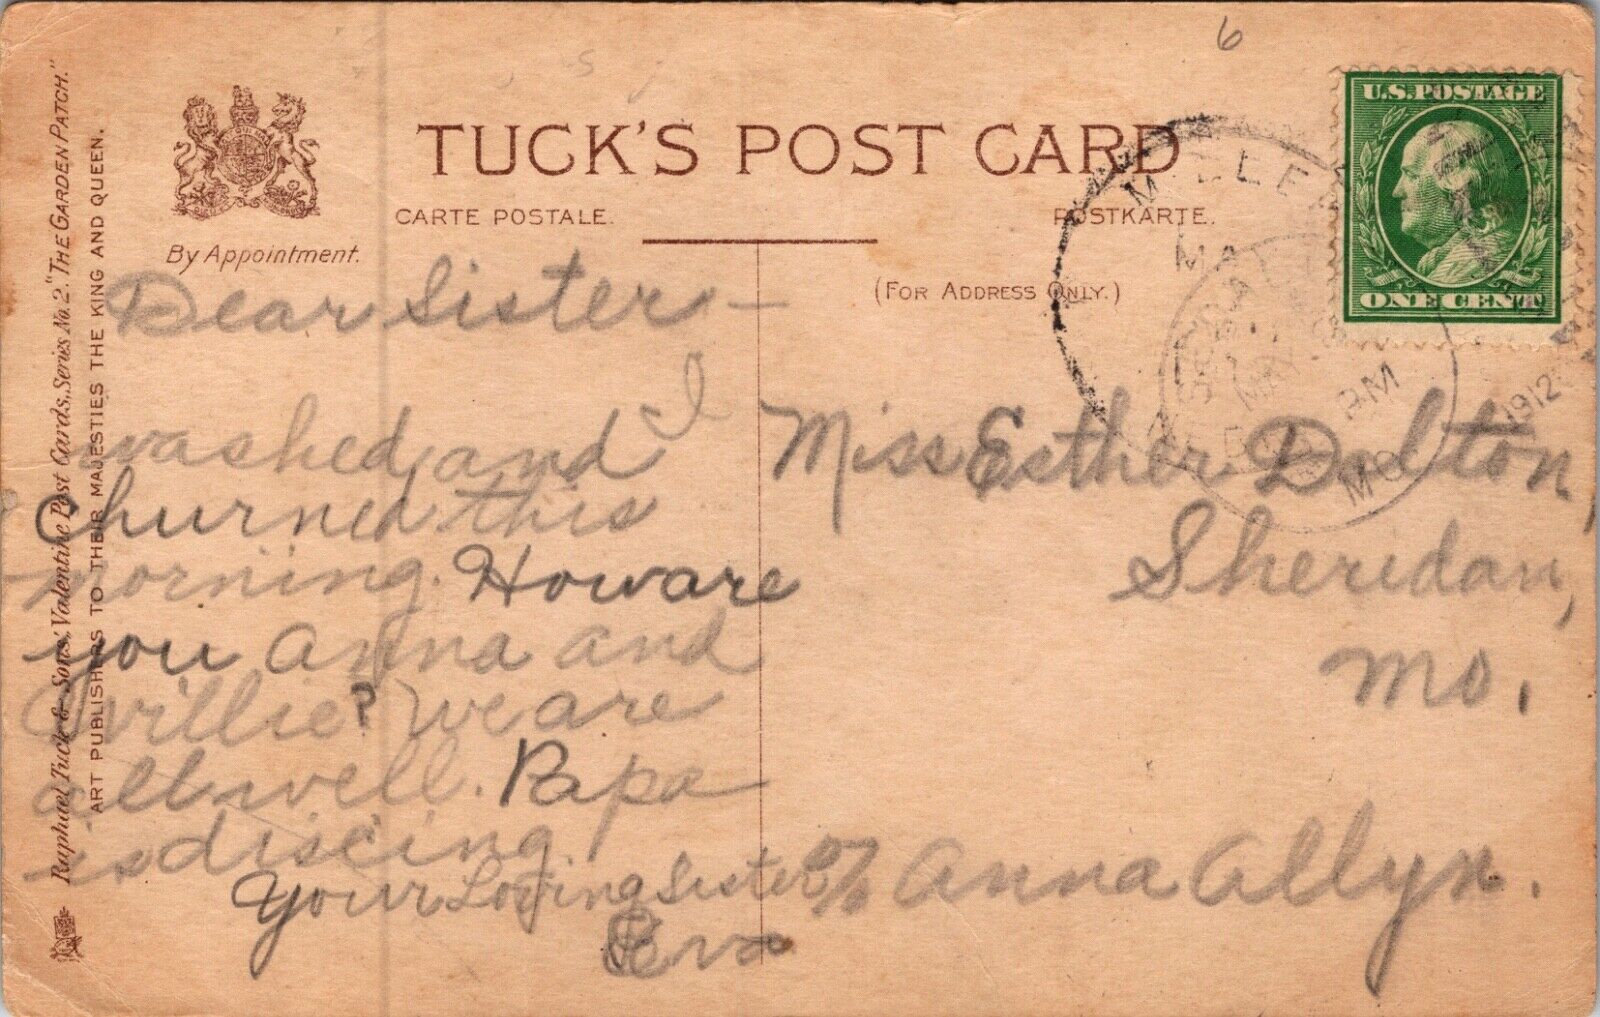 6
U.S. POSTAGE
ONE CENT
TUCK'S POST CARD
CARTE POSTALE.
POSTKARTE.
By Appointment.
(FOR ADDRESS ONLY.)
Raphael Tuck & Sons' "Valentine" Post Cards, Series No. 2. "THE GARDEN PATCH."
ART PUBLISHERS TO THEIR MAJESTIES THE KING AND QUEEN.
MAY
PM
1912
MO
Dear Sister—
I
washed and
Churned this
morning. How are
you Anna and
Willie? We are
all well. Papa
is discing.
Your Loving Sister
Eva
Miss Esther Dalton,
Sheridan,
Mo.
c/o Anna Allyn.